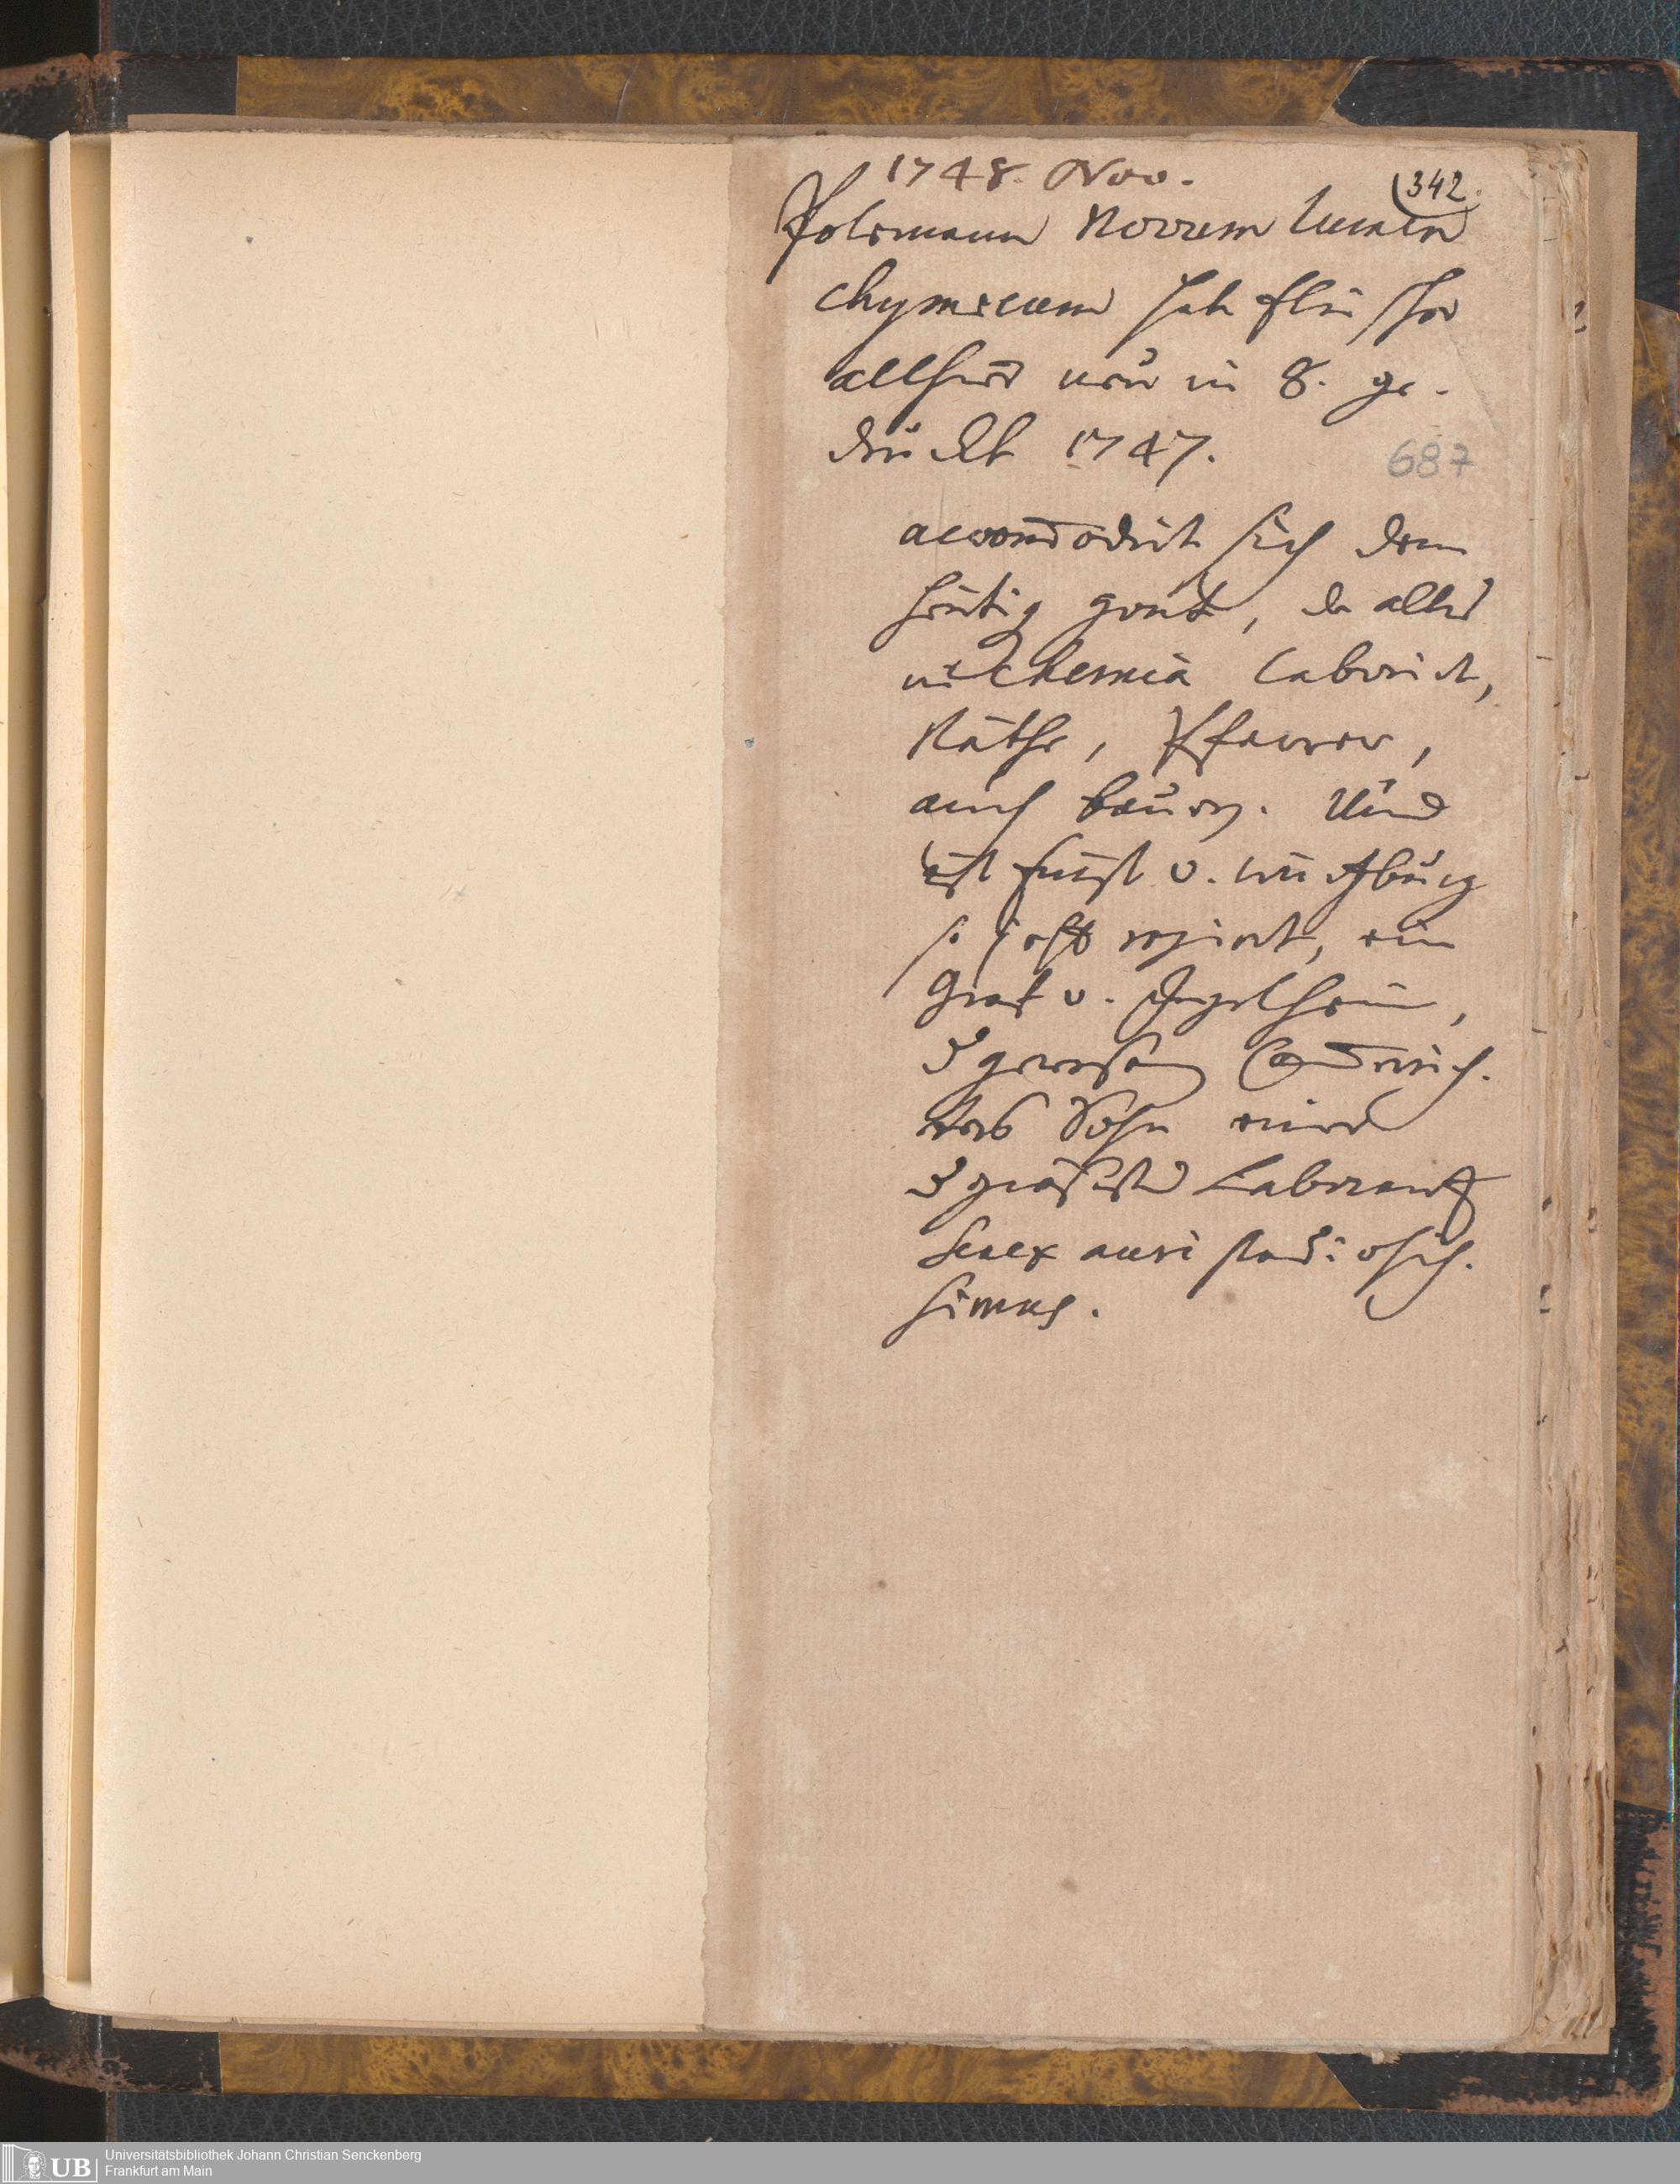 1748. Nov.
342.
Polemann Novum lumen
chymicum hat Fleischer
allhier neu in 8. ge-
druckt 1747.
687
accomodirt sich dem
heutig gout, da alles
in Chemia laborirt,
Räthe, Pfarrer,
auch bauern. Und
ist Fürst v. Würtzburg
so jetzt regiert, ein
Graf v. Ingelheim,
gewesen Cam̄errich-
ters Sohn einer
größesten Laborant
senex auri studiosis-
simus.
Universitätsbibliothek Johann Christian Senckenberg
Frankfurt am Main
UB